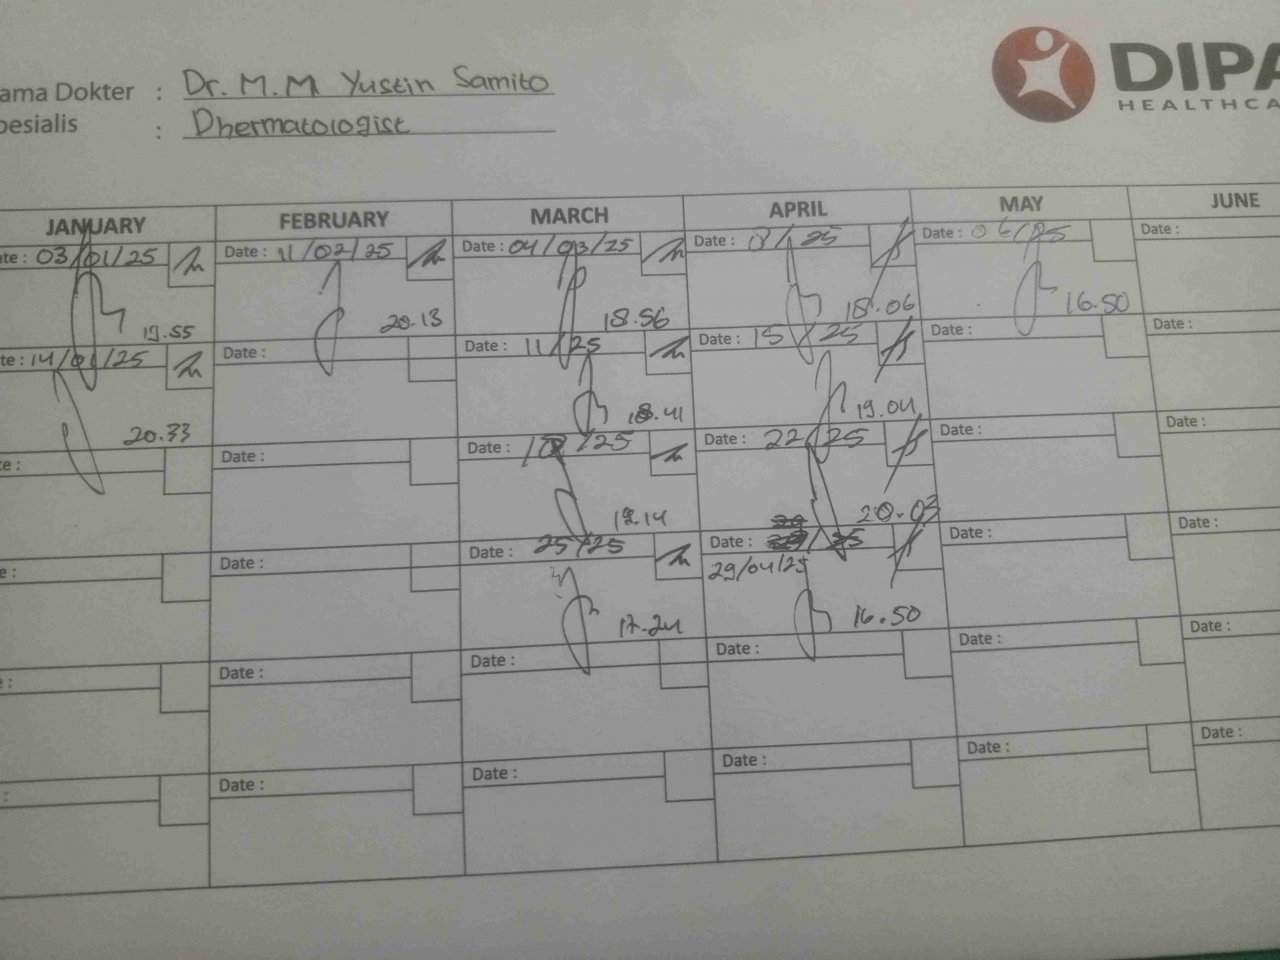 ama Dokter : Dr. M. M Yustin Samito
pesialis : Dhermatologist
DIPA
HEALTHCA
JANUARY FEBRUARY MARCH APRIL MAY JUNE
te: 03/01/25 Date : 11/02/25 Date : 04/03/25 Date : 25 Date : 06/25 Date :
19.55 20.13 18.56 18.06 16.50
te: 14/01/25 Date : Date : 11/25 Date : 15/25 Date : Date :
20.33 18.41 19.04
te: Date : Date : /25 Date : 22/25 Date : Date :
20.03
e: Date : Date : 25/25 Date : Date : Date :
29/04/25
17.24 16.50
e: Date : Date : Date : Date : Date :
: Date : Date : Date : Date : Date :